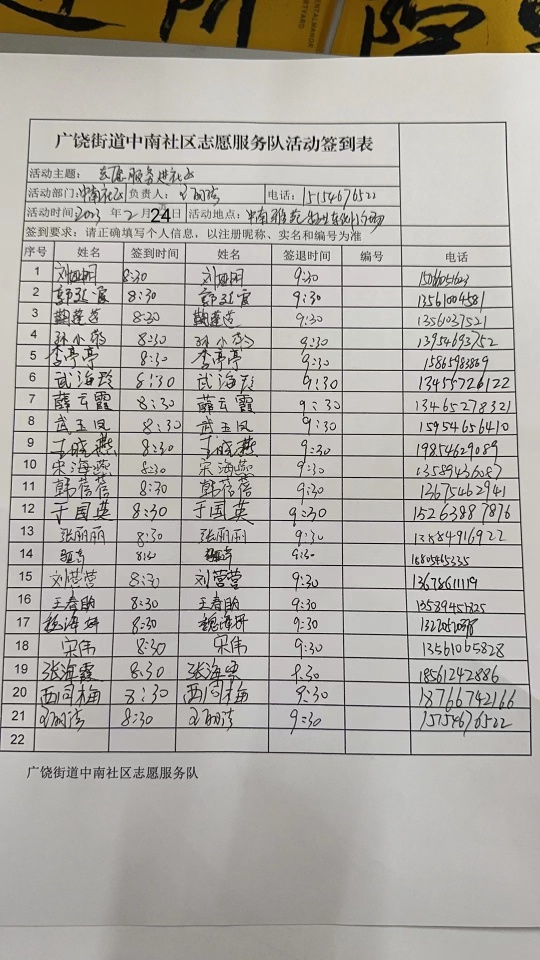 广饶街道中南社区志愿服务队活动签到表
活动主题: 志愿服务进社区
活动部门: 中南社区 负责人: 电话: 15154676522
活动时间: 2023 年 2 月 24 日 活动地点: 中南雅苑
签到要求: 请正确填写个人信息, 以注册昵称、实名和编号为准
序号 姓名 签到时间 姓名 签退时间 编号 电话
1 8:30 9:30
2 8:30 9:30 13561004581
3 8:30 9:30 13561037521
4 孙小 8:30 孙小 9:30 13954693752
5 李亭亭 8:30 李亭亭 9:30 15865983869
6 武海玲 8:30 武海玲 9:30 13455726122
7 薛云霞 8:30 薛云霞 9:30 13465278321
8 武玉凤 8:30 武玉凤 9:30 15954656410
9 王晓燕 8:30 王晓燕 9:30 19854629089
10 宋海燕 8:30 宋海燕 9:30 13589436087
11 韩蓓蓓 8:30 韩蓓蓓 9:30 13675462941
12 于国英 8:30 于国英 9:30 15263887876
13 张丽丽 8:30 张丽丽 9:30 13884916922
14 8:30 9:30
15 刘营营 8:30 刘营营 9:30 13678611119
16 王春 8:30 王春 9:30 13589451825
17 8:30 9:30
18 宋伟 8:30 宋伟 9:30 13561065828
19 张海霞 8:30 张海霞 9:30 18561242886
20 西同梅 8:30 西同梅 9:30 18766742166
21 8:30 9:30 15154676522
22
广饶街道中南社区志愿服务队